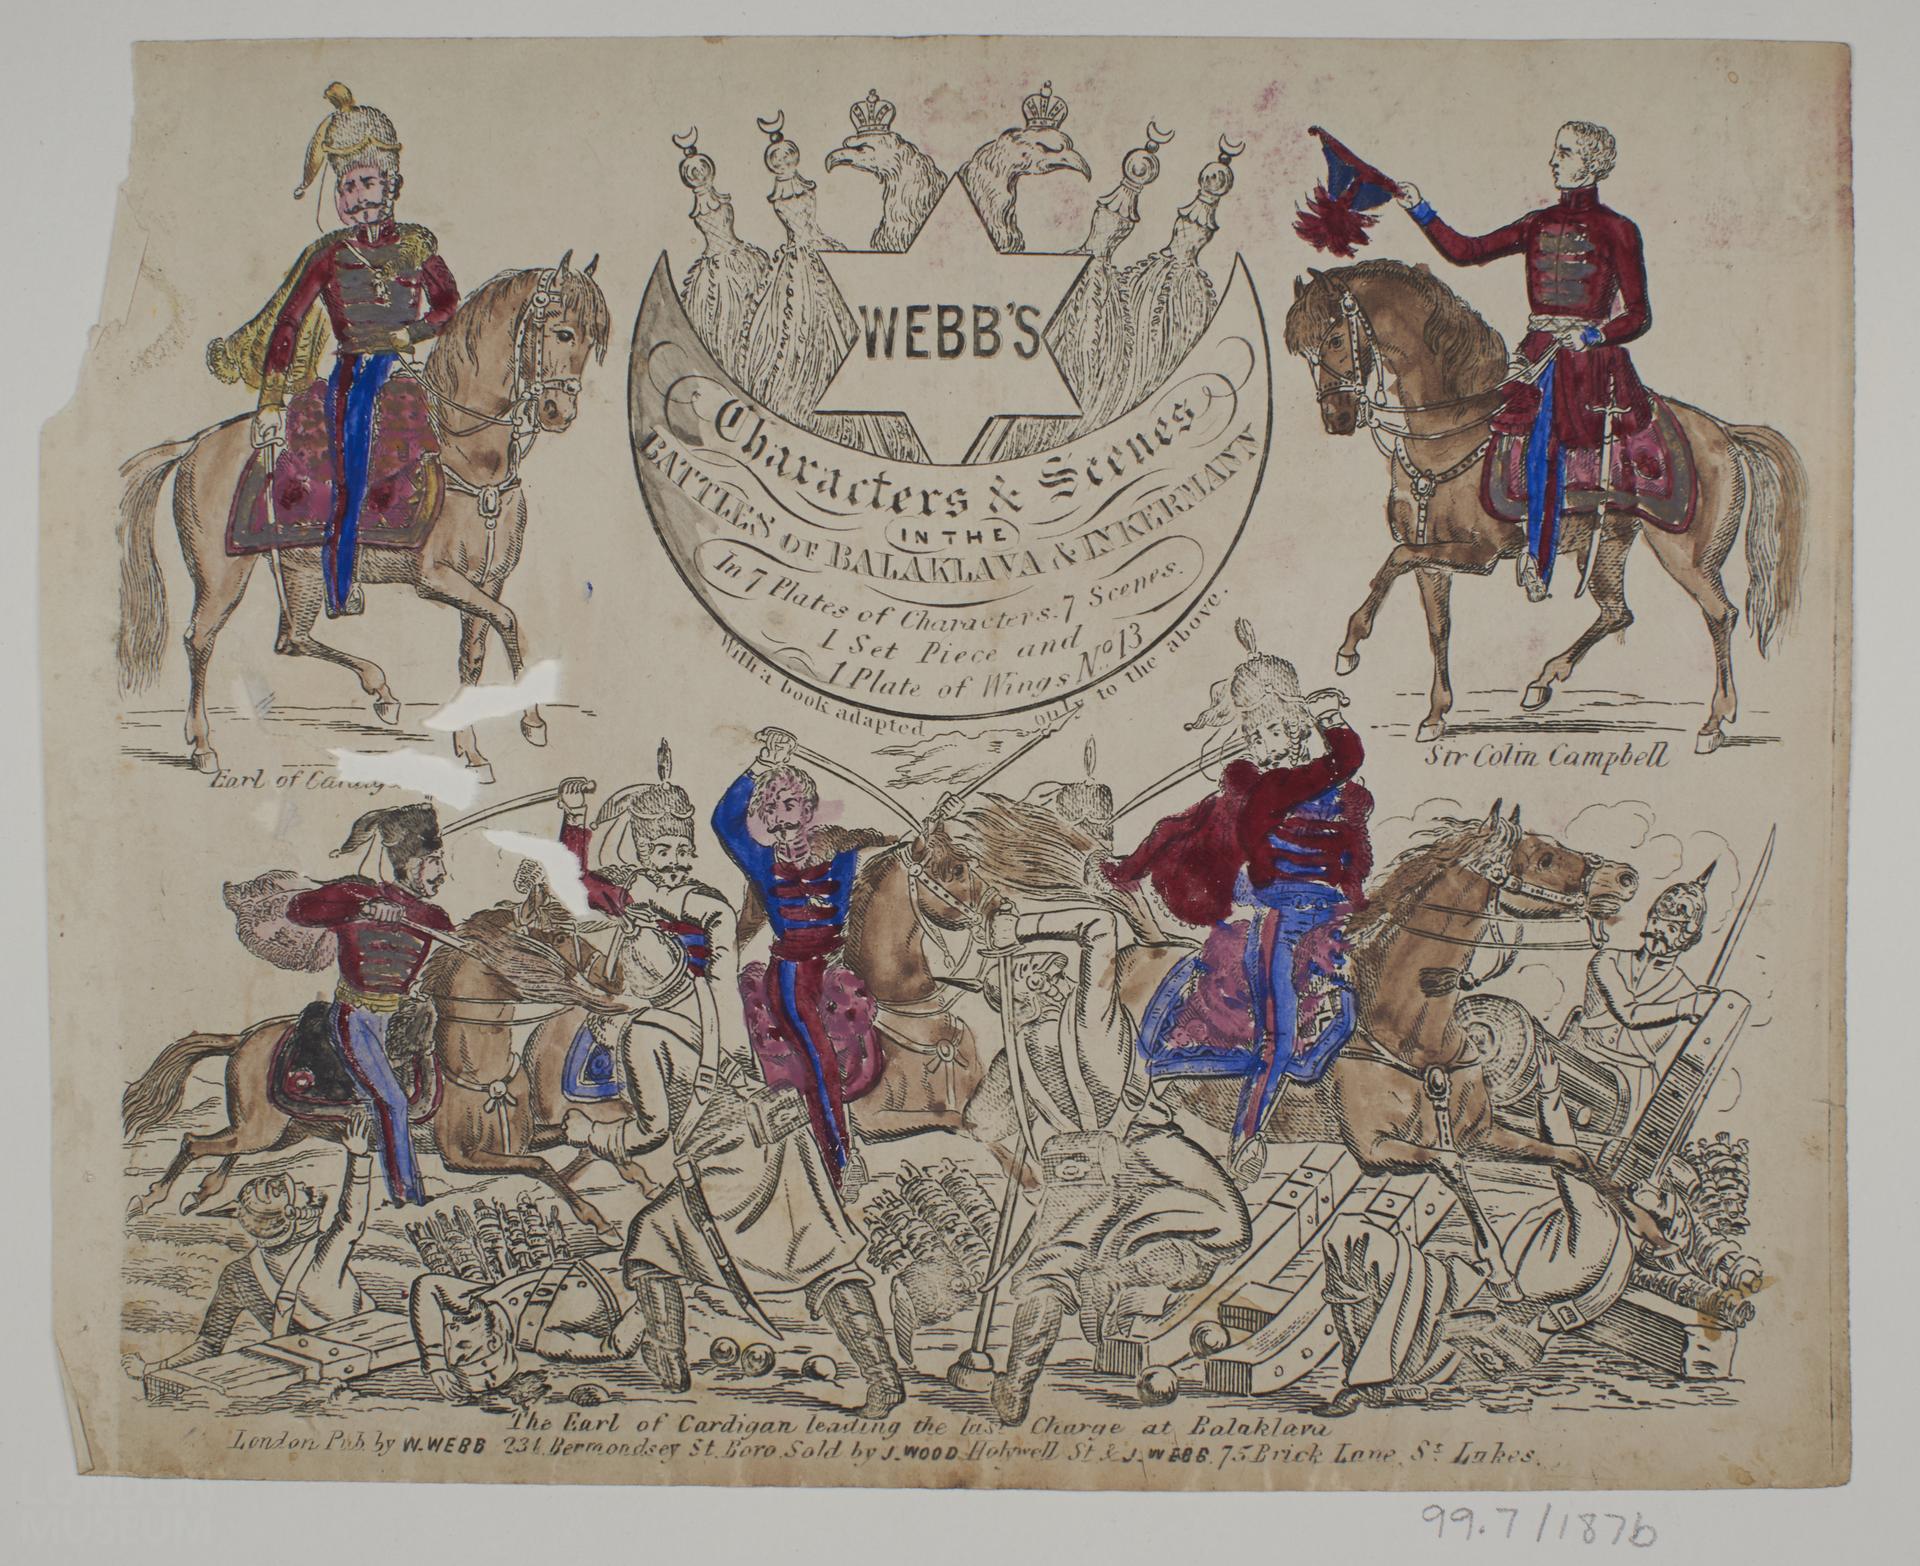 WEBB'S
Characters & Scenes
IN THE
BATTLES OF BALAKLAVA & INKERMANN
In 7 Plates of Characters. 7 Scenes.
1 Set Piece and
1 Plate of Wings No. 13
With a book adapted only to the above.
Earl of
Sir Colin Campbell
The Earl of Cardigan leading the last Charge at Balaklava
London Pub. by W. WEBB 231, Bermondsey St. Boro. Sold by J. WOOD Holywell St. & J. WEBB. 75 Brick Lane, St. Lukes.
99.7/187b
MUSEUM